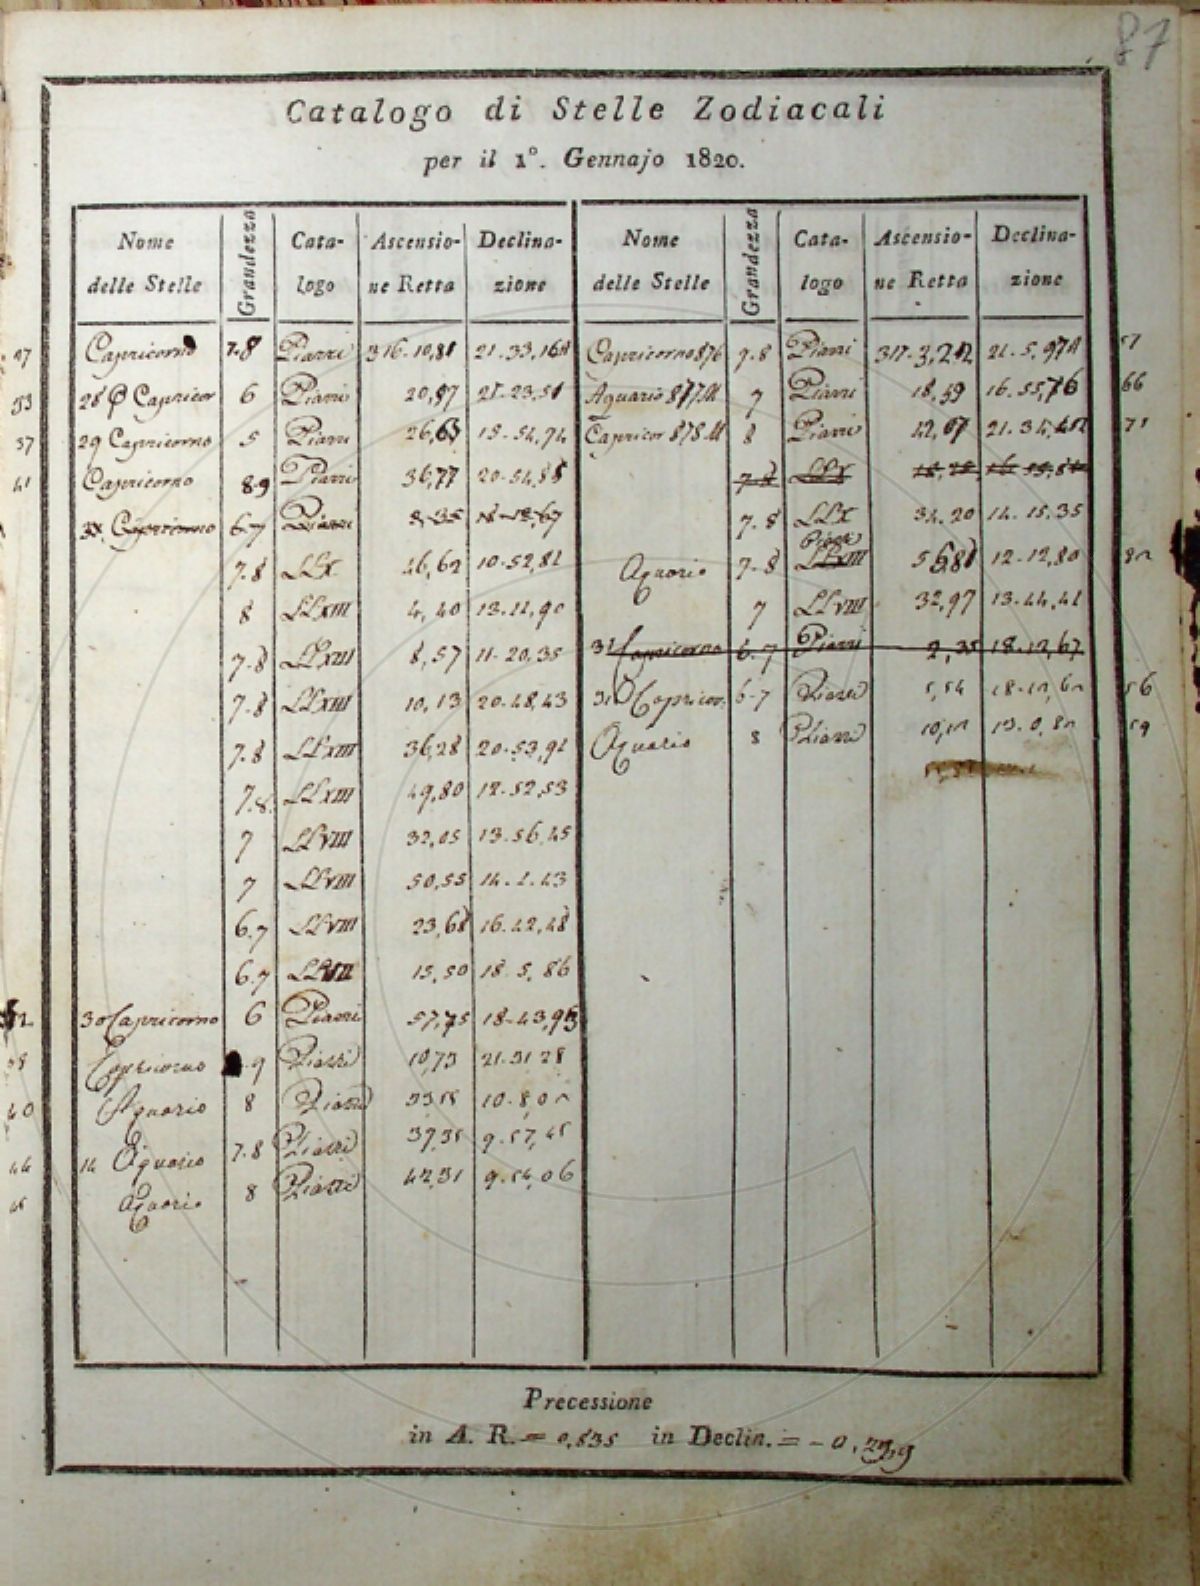 87
Catalogo di Stelle Zodiacali
per il 1º. Gennajo 1820.
Nome delle Stelle Grandezza Cata-logo Ascensio-ne Retta Declina-zione
Capricorno 7.8 Piazzi 316.10,81 21.33,16A
28 φ Capricor 6 Piazzi 20,97 21.23,51
37 29 Capricorno 5 Piazzi 26,63 15.54,74
41 Capricorno 8.9 Piazzi 36,77 20.54,85
Capricorno 6.7 Piazzi 18.12,67
7.8 LLX 46,62 10.52,81
8 LLXIII 4,40 13.11,90
7.8 LLXIII 8,57 11.20,35
7.8 LLXIII 10,13 20.48,43
7.8 LLXIII 36,28 20.53,91
7.8 LLXIII 49,80 12.52,53
7 LLVIII 32,05 13.56,45
7 LLVIII 50,55 14.1.43
6.7 LLVIII 23,68 16.42,48
6.7 15,50 18.5,86
30 Capricorno 6 Piazzi 57,75 18.43,93
Capricorno 9 Piazzi 10,73 21.31,28
40 Aquario 8 Piazzi 10.8,0
44 14 Aquario 7.8 Piazzi 37,35 9.57,45
Aquario 8 Piazzi 42,31 9.54,06
Nome delle Stelle Grandezza Cata-logo Ascensio-ne Retta Declina-zione
Capricorno 876 7.8 Piazzi 317.3,22 21.5,97A 57
Aquario 877.M 7 Piazzi 18,59 16.55,76 66
Capricor 878.M 8 Piazzi 42,67 21.34 71
7.8 LLX
7.8 LLX 34.20 14.15,35
Aquario 7.8 Piazzi LLXIII 56,88 12.12,80 82
7 LLVIII 32,97 13.44,41
31 Capricorno 6.7 Piazzi 2,35 18.12,67
31 Capricor. 6.7 Piazzi 5,54 18.12,62 56
Aquario 8 Piazzi 10,12 13.0,82 59
Precessione
in A. R. = 0,835 in Declin. = - 0,